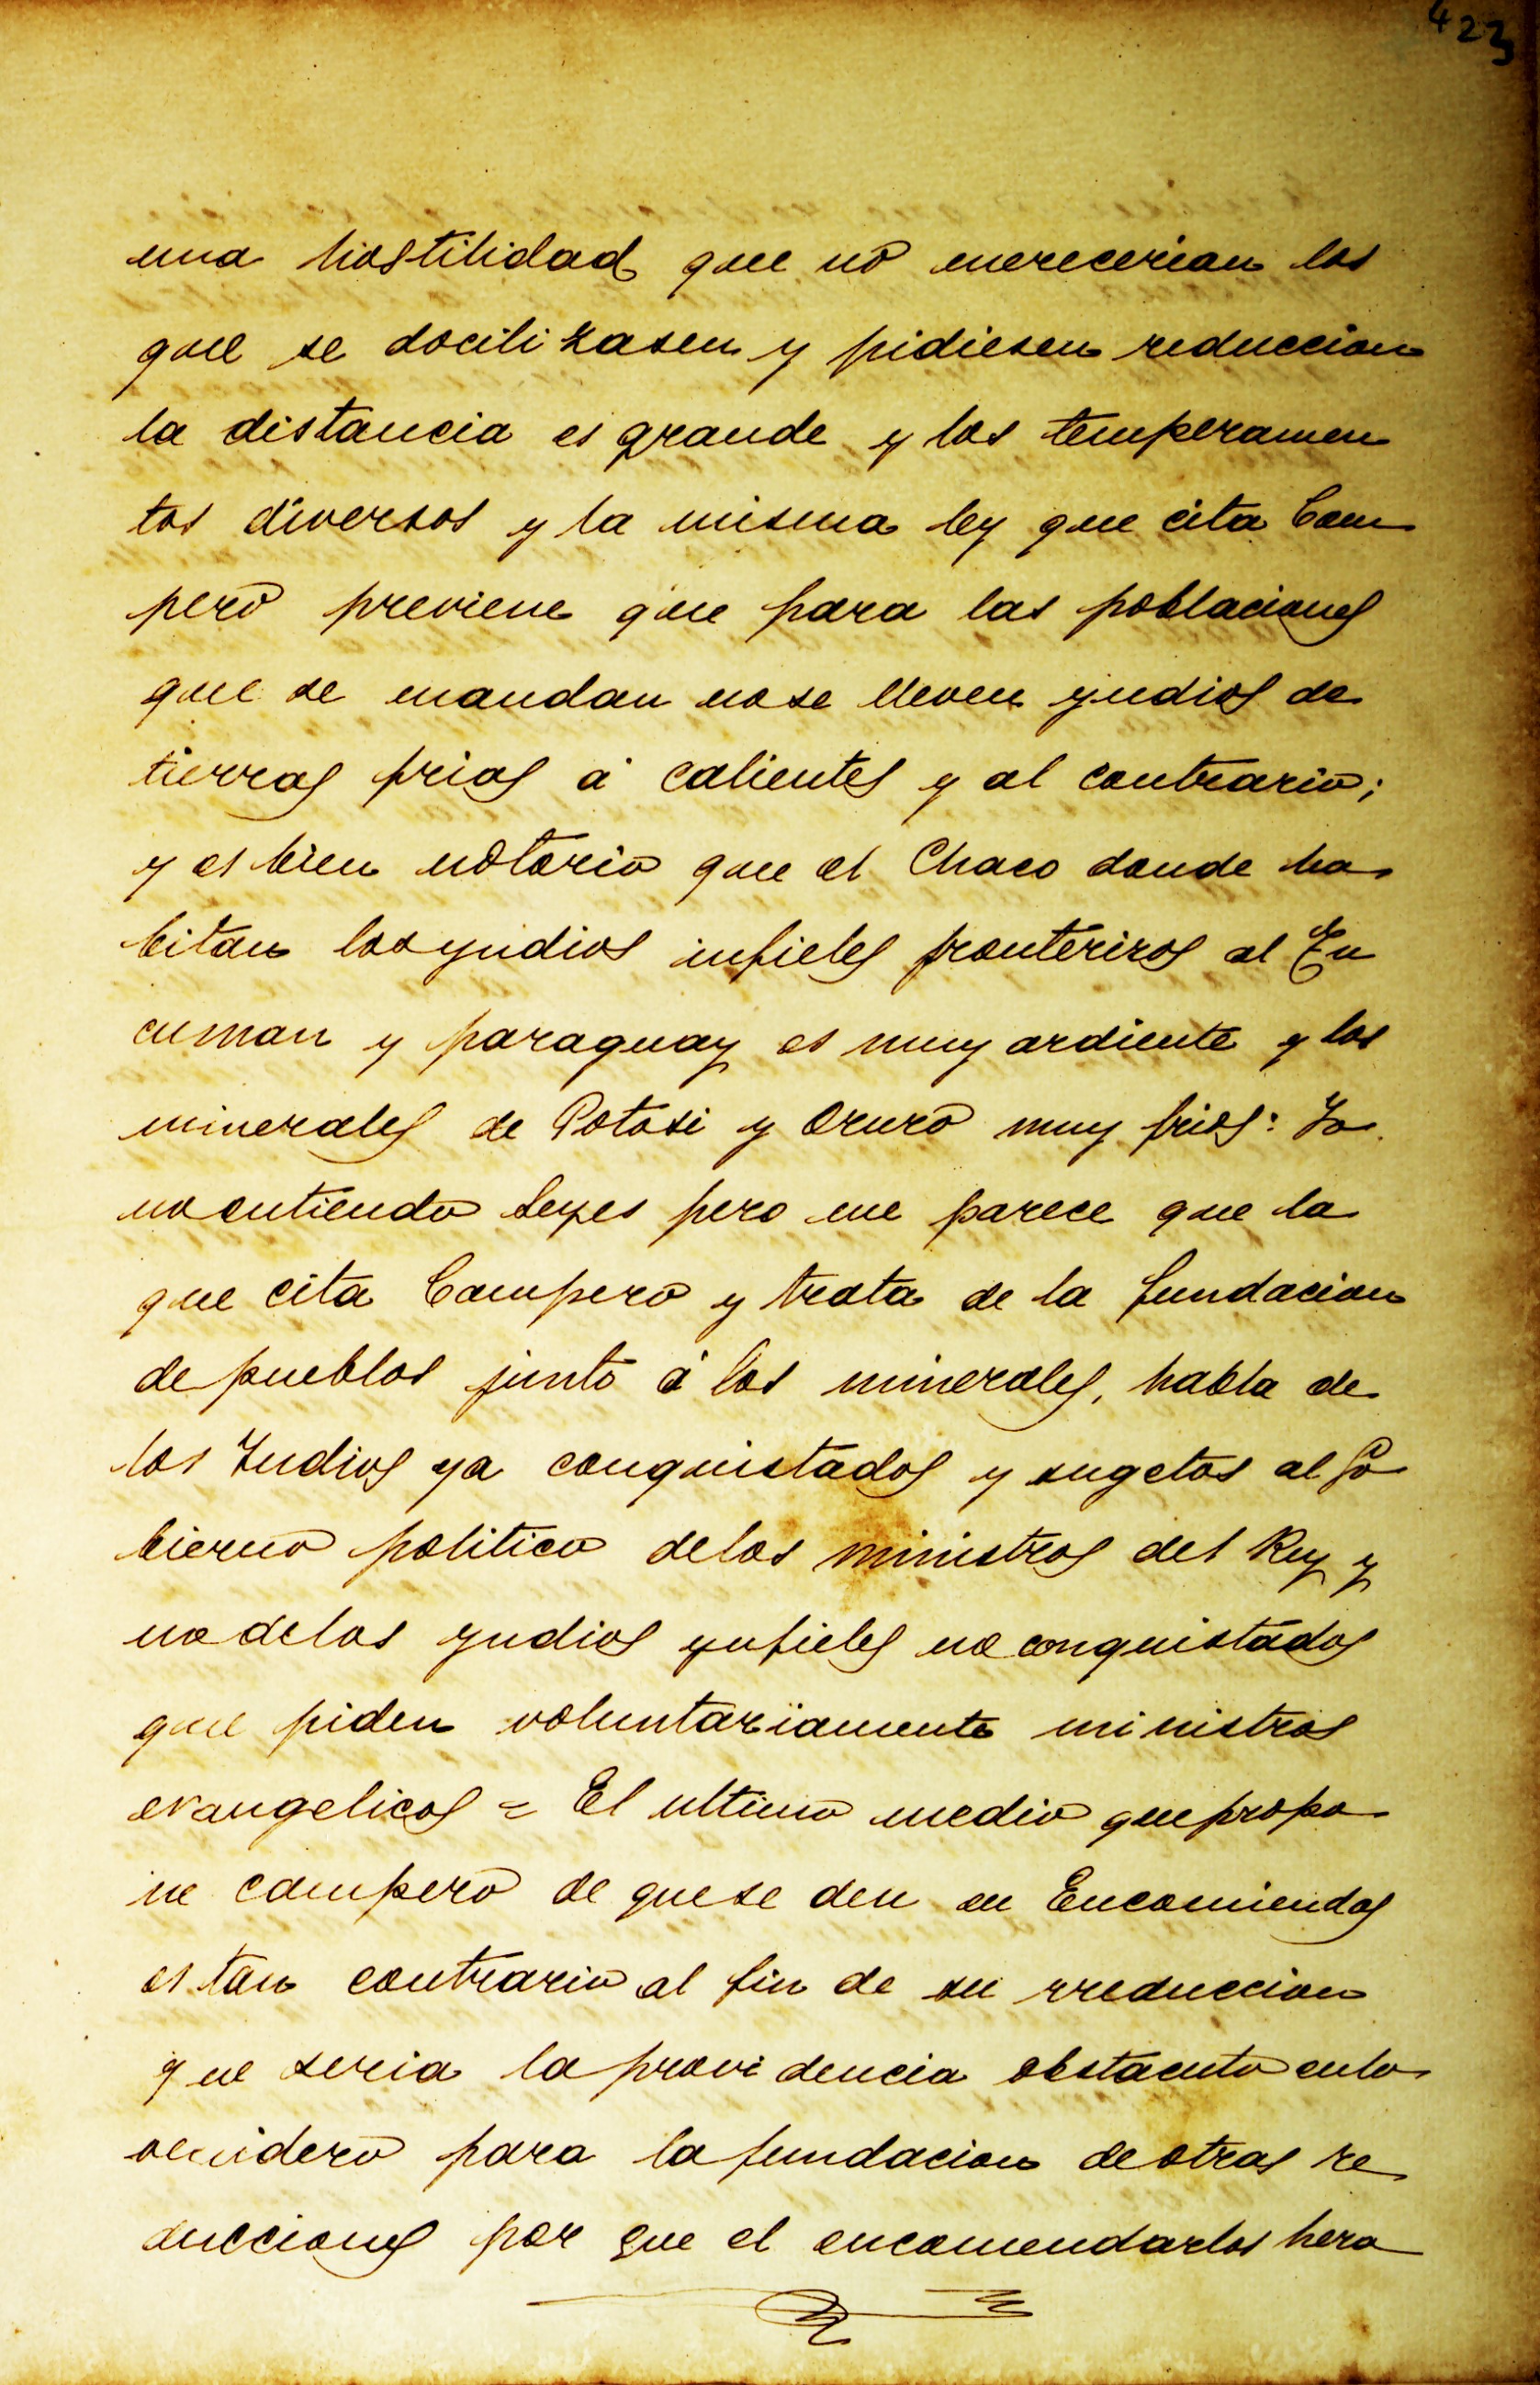 423
una hostilidad que no merecerian los
que se docilizasen y pidiesen reduccion
la distancia es grande y los temperamen
tos diversos y la misma ley que cita Cam
pero previene que para las poblaciones
que se mandan no se lleven yndios de
tierras frias á calientes y al contrario;
y es bien notorio que el Chaco donde ha
bitan los yndios infieles fronterizos al Tu
cuman y paraguay es muy ardiente y los
minerales de Potosi y Oruro muy frios: Yo
no entiendo Leyes pero me parece que la
que cita Campero y trata de la fundacion
de pueblos junto á los minerales, habla de
los Yndios ya conquistados y sugetos al Go
bierno politico de los ministros del Rey y
no de los yndios ynfieles no conquistados
que piden voluntariamente ministros
evangelicos = El ultimo medio que propo
ne campero de que se den en Encomiendas
es tan contrario al fin de su rreduccion
que seria la providencia obstaculo en lo
para la fundacion de otras re
ducciones por que el encomendarlos hera